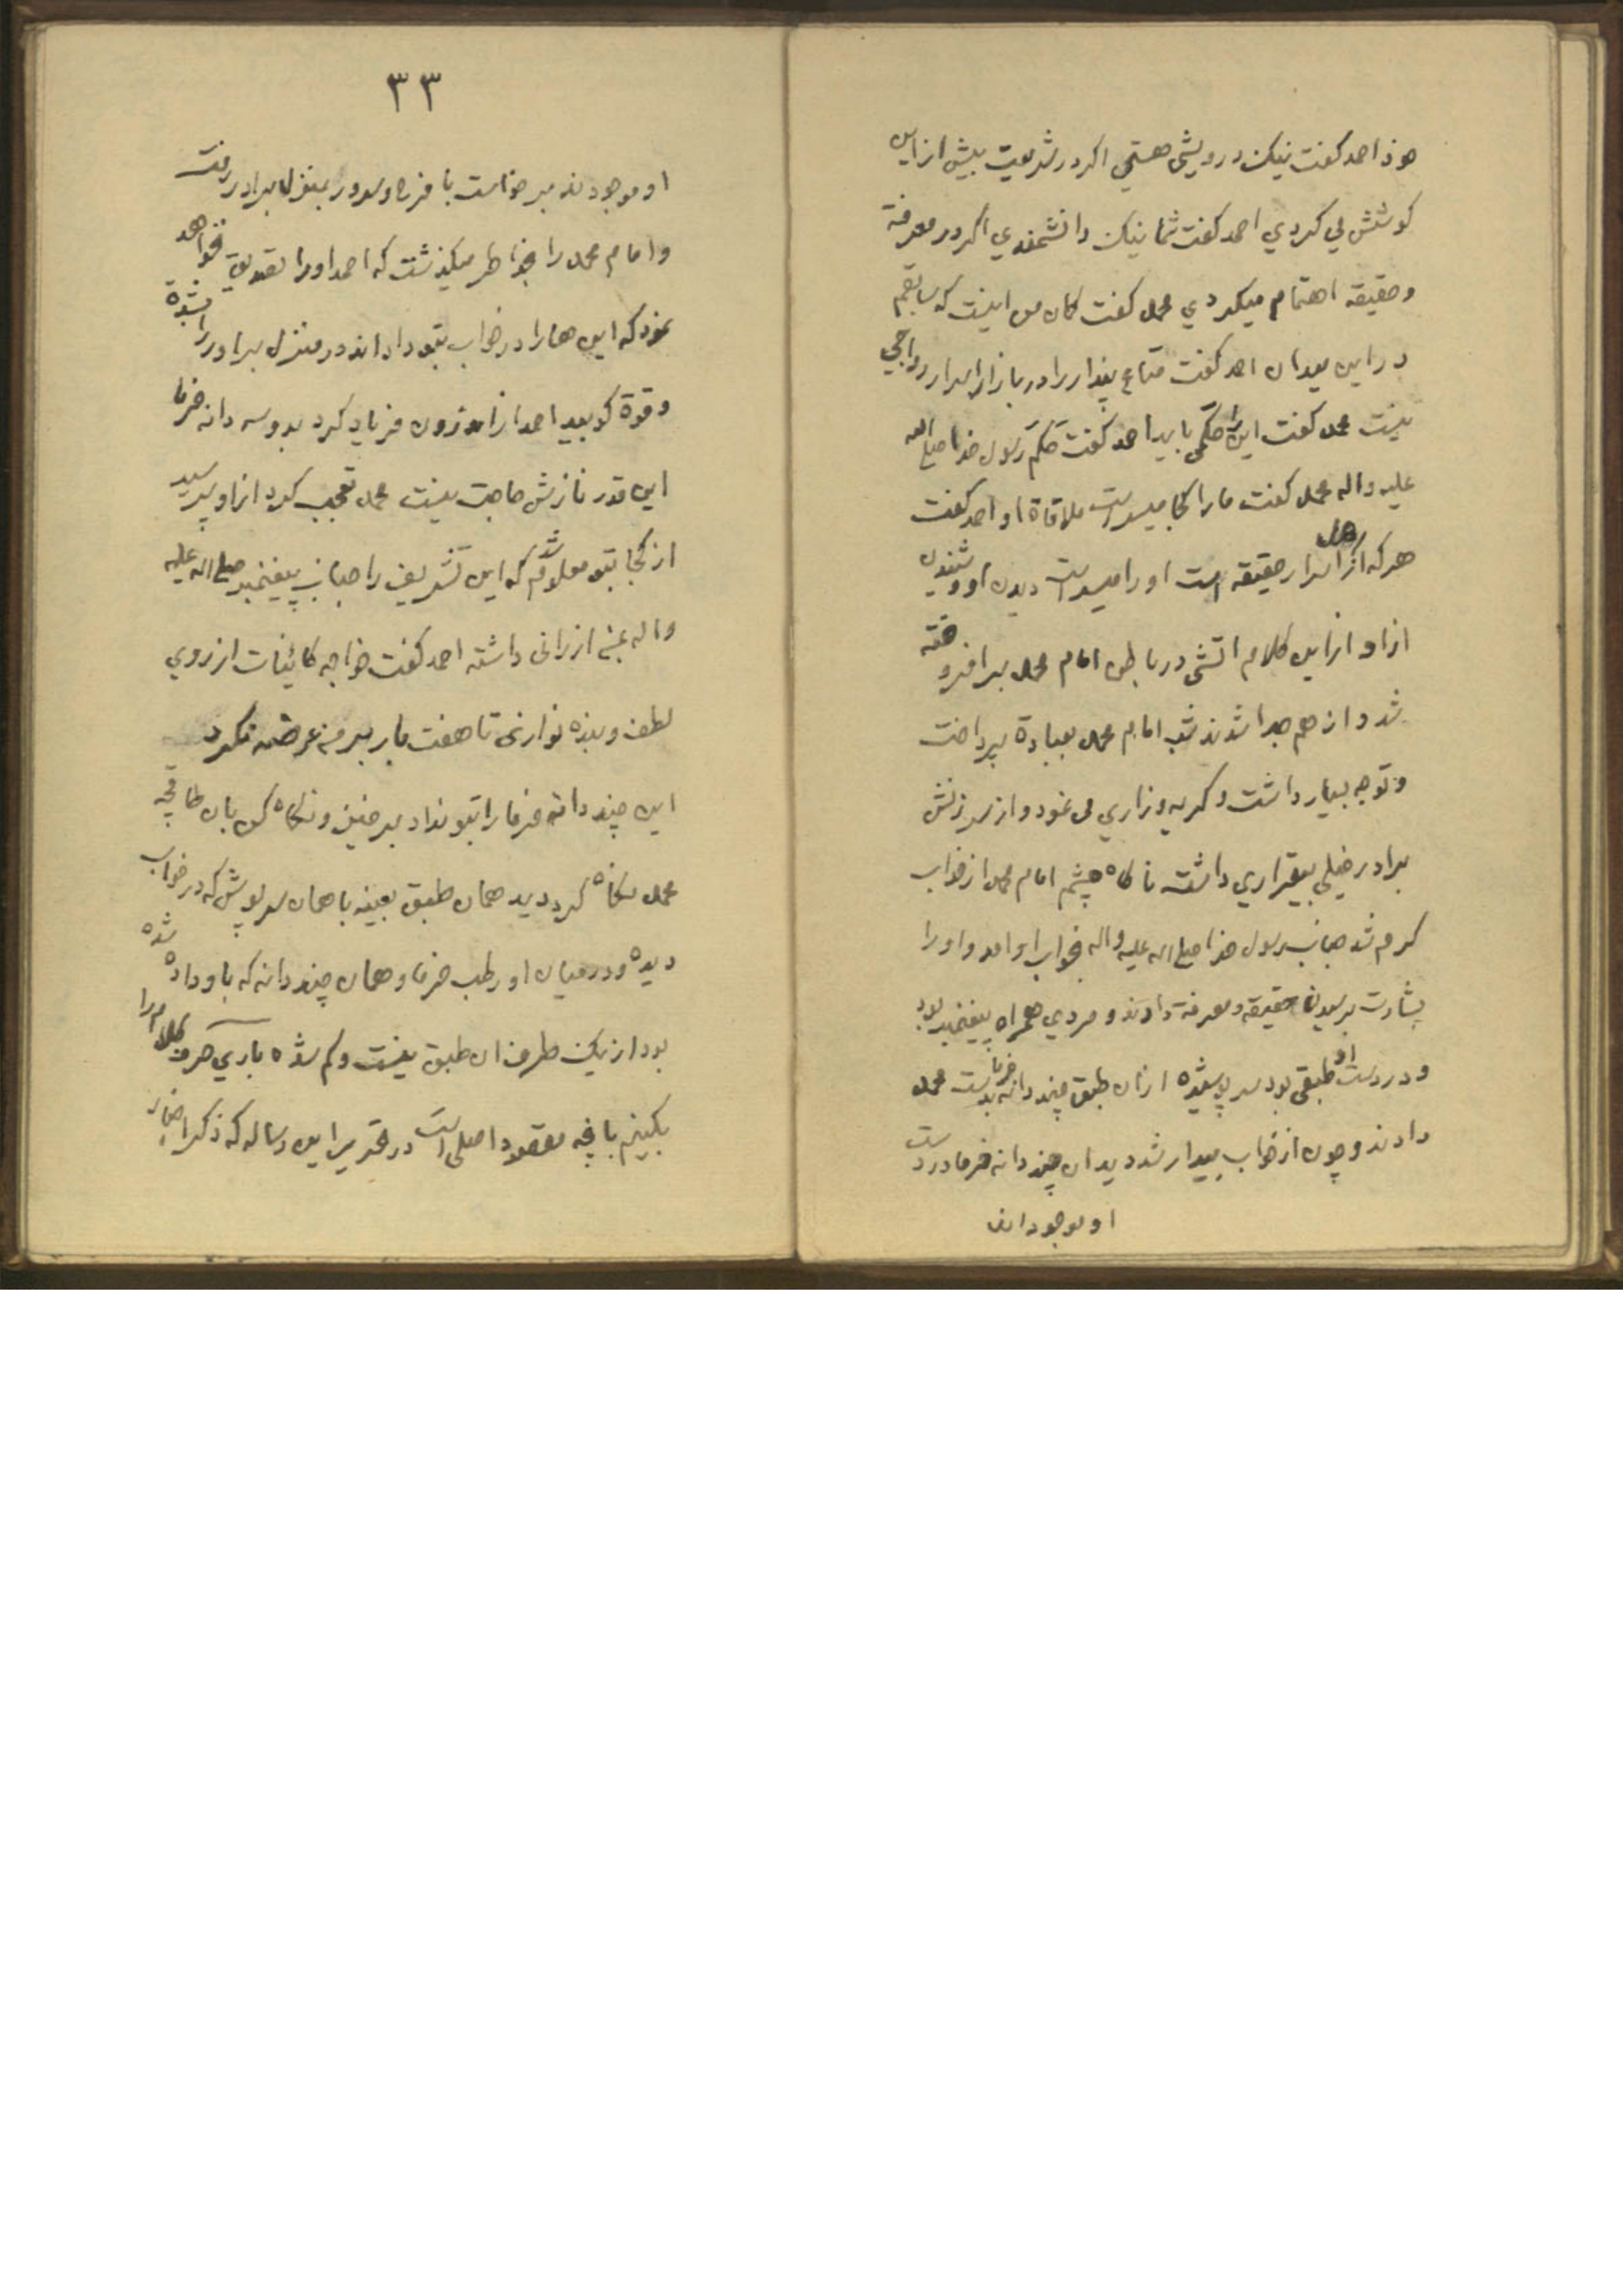 خود احمد گفت نیک درویشی هستی اگر در شریعت بیش از این
کوشش می کردی احمد گفت شما نیک دانشمندی اگر در معرفة
و حقیقه اهتمام میکردی محمد گفت کمان من اینست که سابقم
در این میدان احمد گفت متاع پندار را در بازار اسرار رواجی
نیست محمد گفت این را حکمی باید احمد گفت حکم رسول خدا صلی الله
علیه واله محمد گفت ما را کجا میسر است ملاقاة او احمد گفت
هر که از اهل اسرار حقیقه است او را میسر است دیدن او و شنیدن
از او از این کلام اتشی در باطن امام محمد برافروخته
شد و از هم جدا شدند شب امام محمد بعبادة پرداخت
و توجه بسیار داشت و گریه و زاری می نمود و از سرزنش
برادر خیلی بیقراری داشت ناگاه چشم امام محمد از خواب
گرم شد جناب رسول خدا صلی الله علیه واله بخواب او امد و او را
بشارت برسیدن حقیقه و معرفة دادند و مردی همراه پیغمبر بود
و در دست او طبقی بود سر پوشیده از ان طبق چند دانه خرما بدست محمد
دادند و چون از خواب بیدار شد دید ان چند دانه خرما در دست
او موجودند
۳۳
او موجودند برخاست با فرح و سرور بمنزل برادر رفت
و امام محمد را بخاطر میگذشت که احمد او را تصدیق نخواهد
نمود که این ها را در خواب بتو داده اند در منزل برادر را
و قوة کوبید احمد از اندرون فریاد کرد بدو سه دانه خرما
این قدر نازش حاجت نیست محمد تعجب کرد از او پرسید
از کجا بتو معلوم شد که این تشریف را جناب پیغمبر صلی الله علیه
واله بمن ارزانی داشته احمد گفت خواجه کائنات از روی
لطف و بنده نوازی تا هفت بار بر من عرضه نکرد
این چند دانه خرما را بتو نداد برخیز و نگاه کن بان طاقچه
محمد نگاه کرد دید همان طبق بعینه با همان سر پوش که در خواب
دیده و در میان او رطب خرما و همان چند دانه که باو داده شده
بود از یک طرف ان طبق نیست و کم شده باری صرف کلام را
بکنیم بانچه مقصود اصلی است در تحریر این رساله که ذکر اخبار